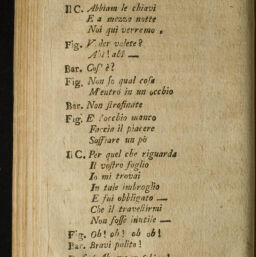 Il C. Abbiam le chiavi
E a mezza notte
Noi qui verremo.
Fig. V der volete?
Ahi! ahi —
Bar. Cos' è?
Fig. Non so qual cosa
M'entrò in un occhio
Bar. Non strofinate
Fig. E' l'occhio manco
Faccia il piacere
Soffiare un pò
Il C. Per quel che riguarda
Il vostro foglio
Io mi trovai
In tale imbroglio
E fui obbligato —
Che il travestirmi
Non fosse inutile —
Fig. Oh! oh! oh oh!
Bar. Bravi polito!